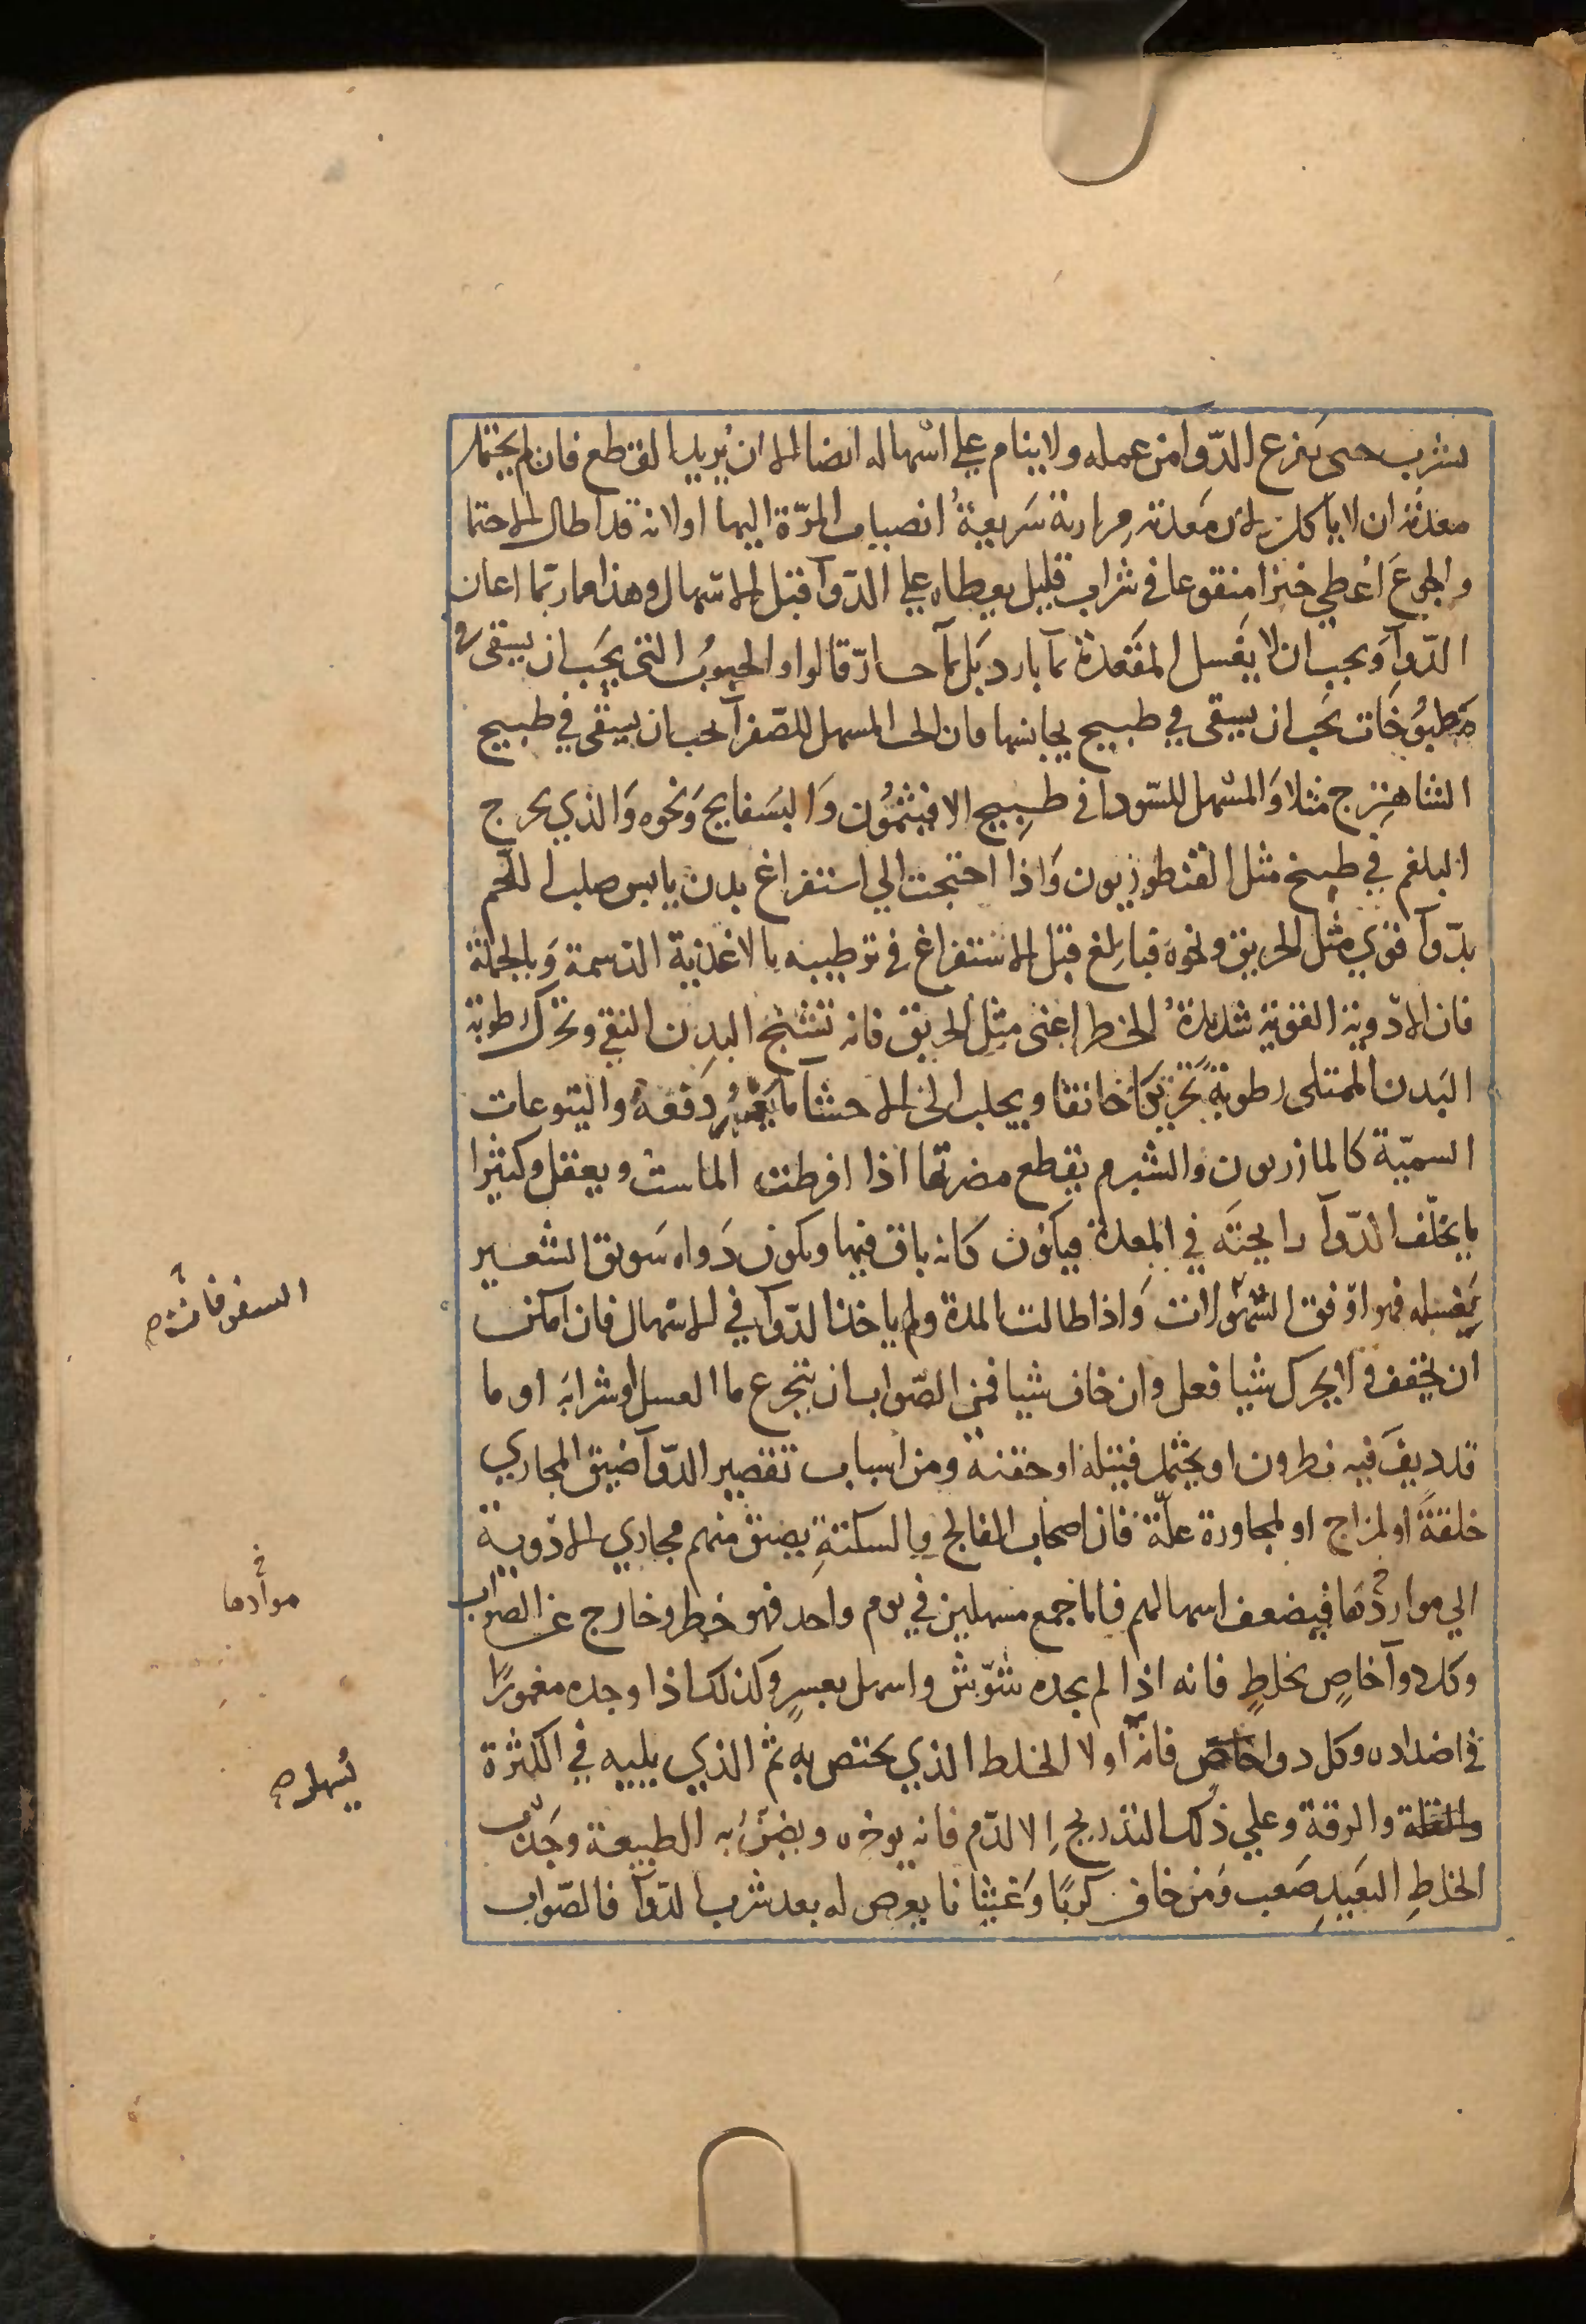 يشرب حتى يفرغ الدّوآ من عمله ولا ينام علي اسهاله ايضا الا ان يُريد القطع فان لم يحتمل
معدته ان لا ياكل لان معدته مرارية سَريعةُ انصباب المرّة اليها او لانه قد اطال الاحتما
والجوعَ اُعطي خبزا منقوعا في شراب قليل يعطاه علي الدّوآ قبل الاسهال وهذا مما ربّما اعان
الدّوآ وَيجب ان لا يغسل المَقعَدة بمآ بارد بَل بمآ حارّ قالوا والحبوبُ التي يجَب ان يسقى في
مَطبُوخَات يجَب ان يسقى في طبيخ يجانسها فان الحب المسهل للصّفرآ يجب ان يسقى في طبيخ
الشاهترج مثلا وَالمسْهل للسّودا في طبيخ الافيثمُون وَالبسَفايج وَنحوه وَالذي يخرج
البلغم في طبيخ مثل القنطوريون وَاذا احتجت الي استفراغ بدن يابس صلب اللّحم
بدّوآ قوي مثل الخربق ونحوه فبالغ قبل الاستفراغ في ترطيبه بالاغذية الدّسمة وَبالجملة
فان الادّوية القوية شديدةُ الخطر اعنى مثل الخربق فانه تشنج البدن النقي وتحرك رطوبة
البَدن الممتلي رطوبة تحريكا خانقا ويجلب الى الاحشآ ما يعسُر دَفعهُ واليتوعات
السميّة كالمازريون والشبرم يقطع مضرتها اذا افرطت الماست ويعقل وكثيرا
ما يخلّف الدّوآ رايحتَه في المعدة فيكَون كانه باق فيها ويكون دَواه سَويق الشعير
يَغسله فهو اوفق السَّفوفات وَاذا طالت المدة ولم ياخذ الدّوآ في الاسهال فان امكن
ان يخفف ولا يحرك شيا فعل وان خاف شيا فمن الصّواب ان يتجرع ما العسل او شرابه او ما
قد ديفَ فيه نطرون او يحتمل فتيلة او حقنة ومن اسباب تقصير الدّوآ ضيق المجاري
خلقةً او لمزاج او لمجاورة علّة فان اصحاب الفالج والسكتةِ يضيق منهم مجاري الادوية
الي مواردْهَا فيضعف اسهالهم فاما جمع مسهلين في يوم واحد فهو خطر وخارج عن الصّواب
وكل دوآ خاصٍ بخلطٍ فانه اذا لم يجده شوّش واسهل بعسرٍ وكذلك اذا وجده مغمورًا
في اضداده وكل دوا خاصّ فانّه اولا الخلط الذي يختص به ثم الذي يليه في الكثرة
والقلة والرقة وعلي ذلك التدريج اِلا الدّم فانه يوخره ويضنّ به الطبيعة وجَذب
الخلطِ البَعيدِ صَعب وَمن خاف كربًا وَغثيانا يعرض له بعد شرب الدّوآ فالصّواب
السفوفات صح
موادها خ
يُسهل صح